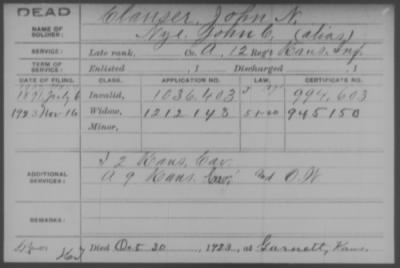 DEAD
NAME OF SOLDIER: Clanser, John N.
Nye, John C. (alias)
SERVICE: Late rank, Co. A, 12 Reg't Kans. Inf.
TERM OF SERVICE: Enlisted , 1 Discharged , 1
DATE OF FILING. CLASS. APPLICATION NO. LAW. CERTIFICATE NO.
1891 July 6 Invalid, 1036.403 994.603
1923 Nov 16 Widow, 1212143 945150
Minor,
ADDITIONAL SERVICES: I 2 Kans. Cav.
A 9 Kans. Cav. O W
REMARKS:
Died Oct 30 , 1923, at Garnett, Kans.